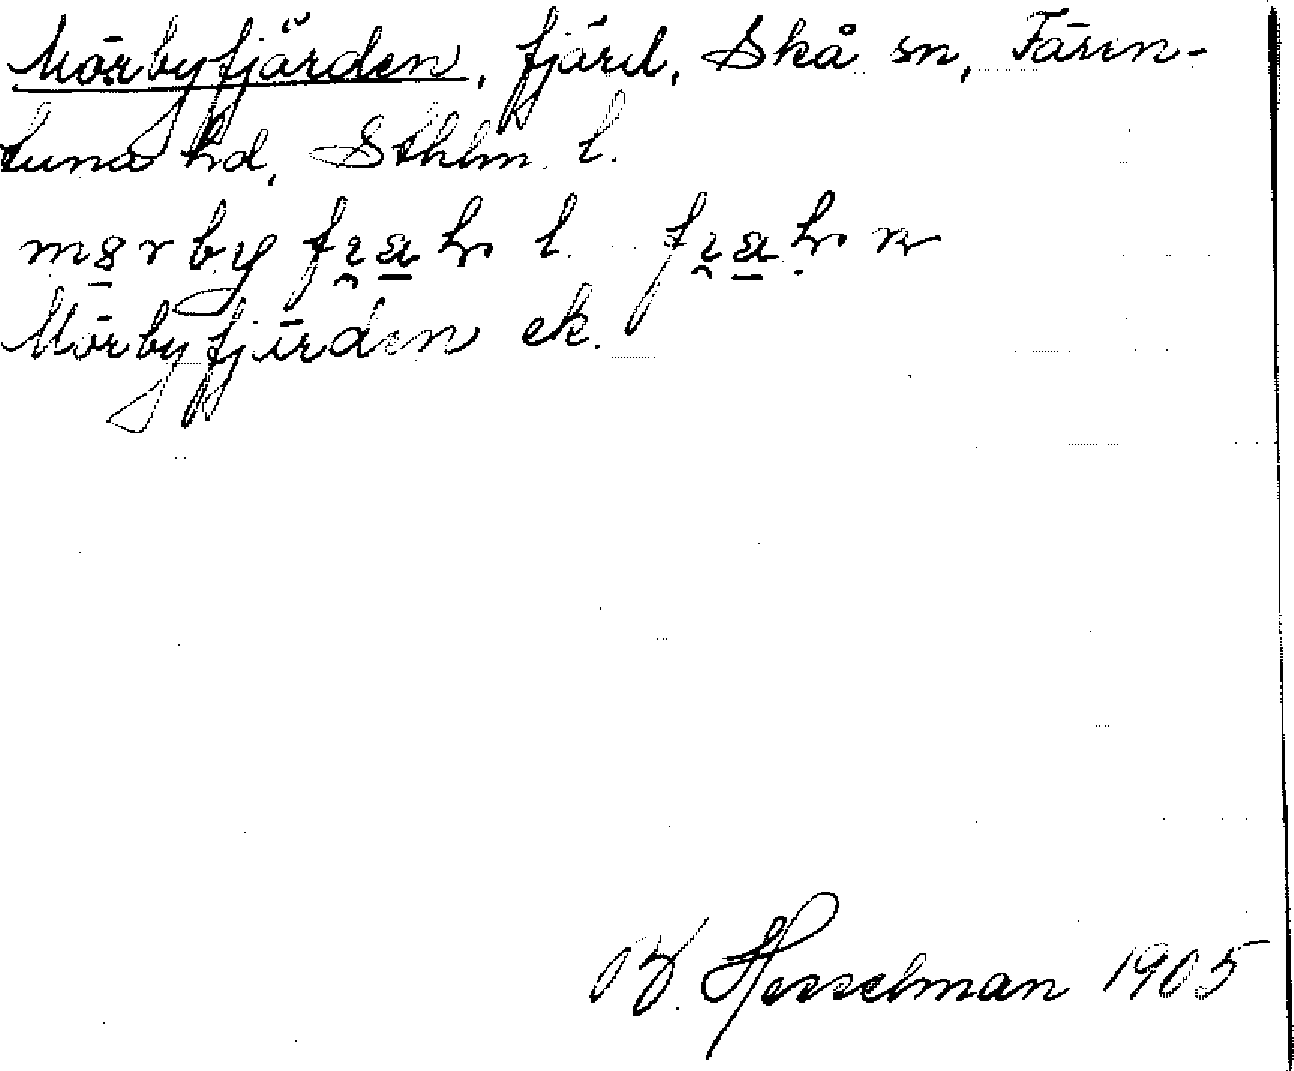 Mörbyfjärden, fjärd, Skå sn, Fären-
tuna hd, Sthlm l.
Mörbyfjärden ek.
B. Hesselman 1905